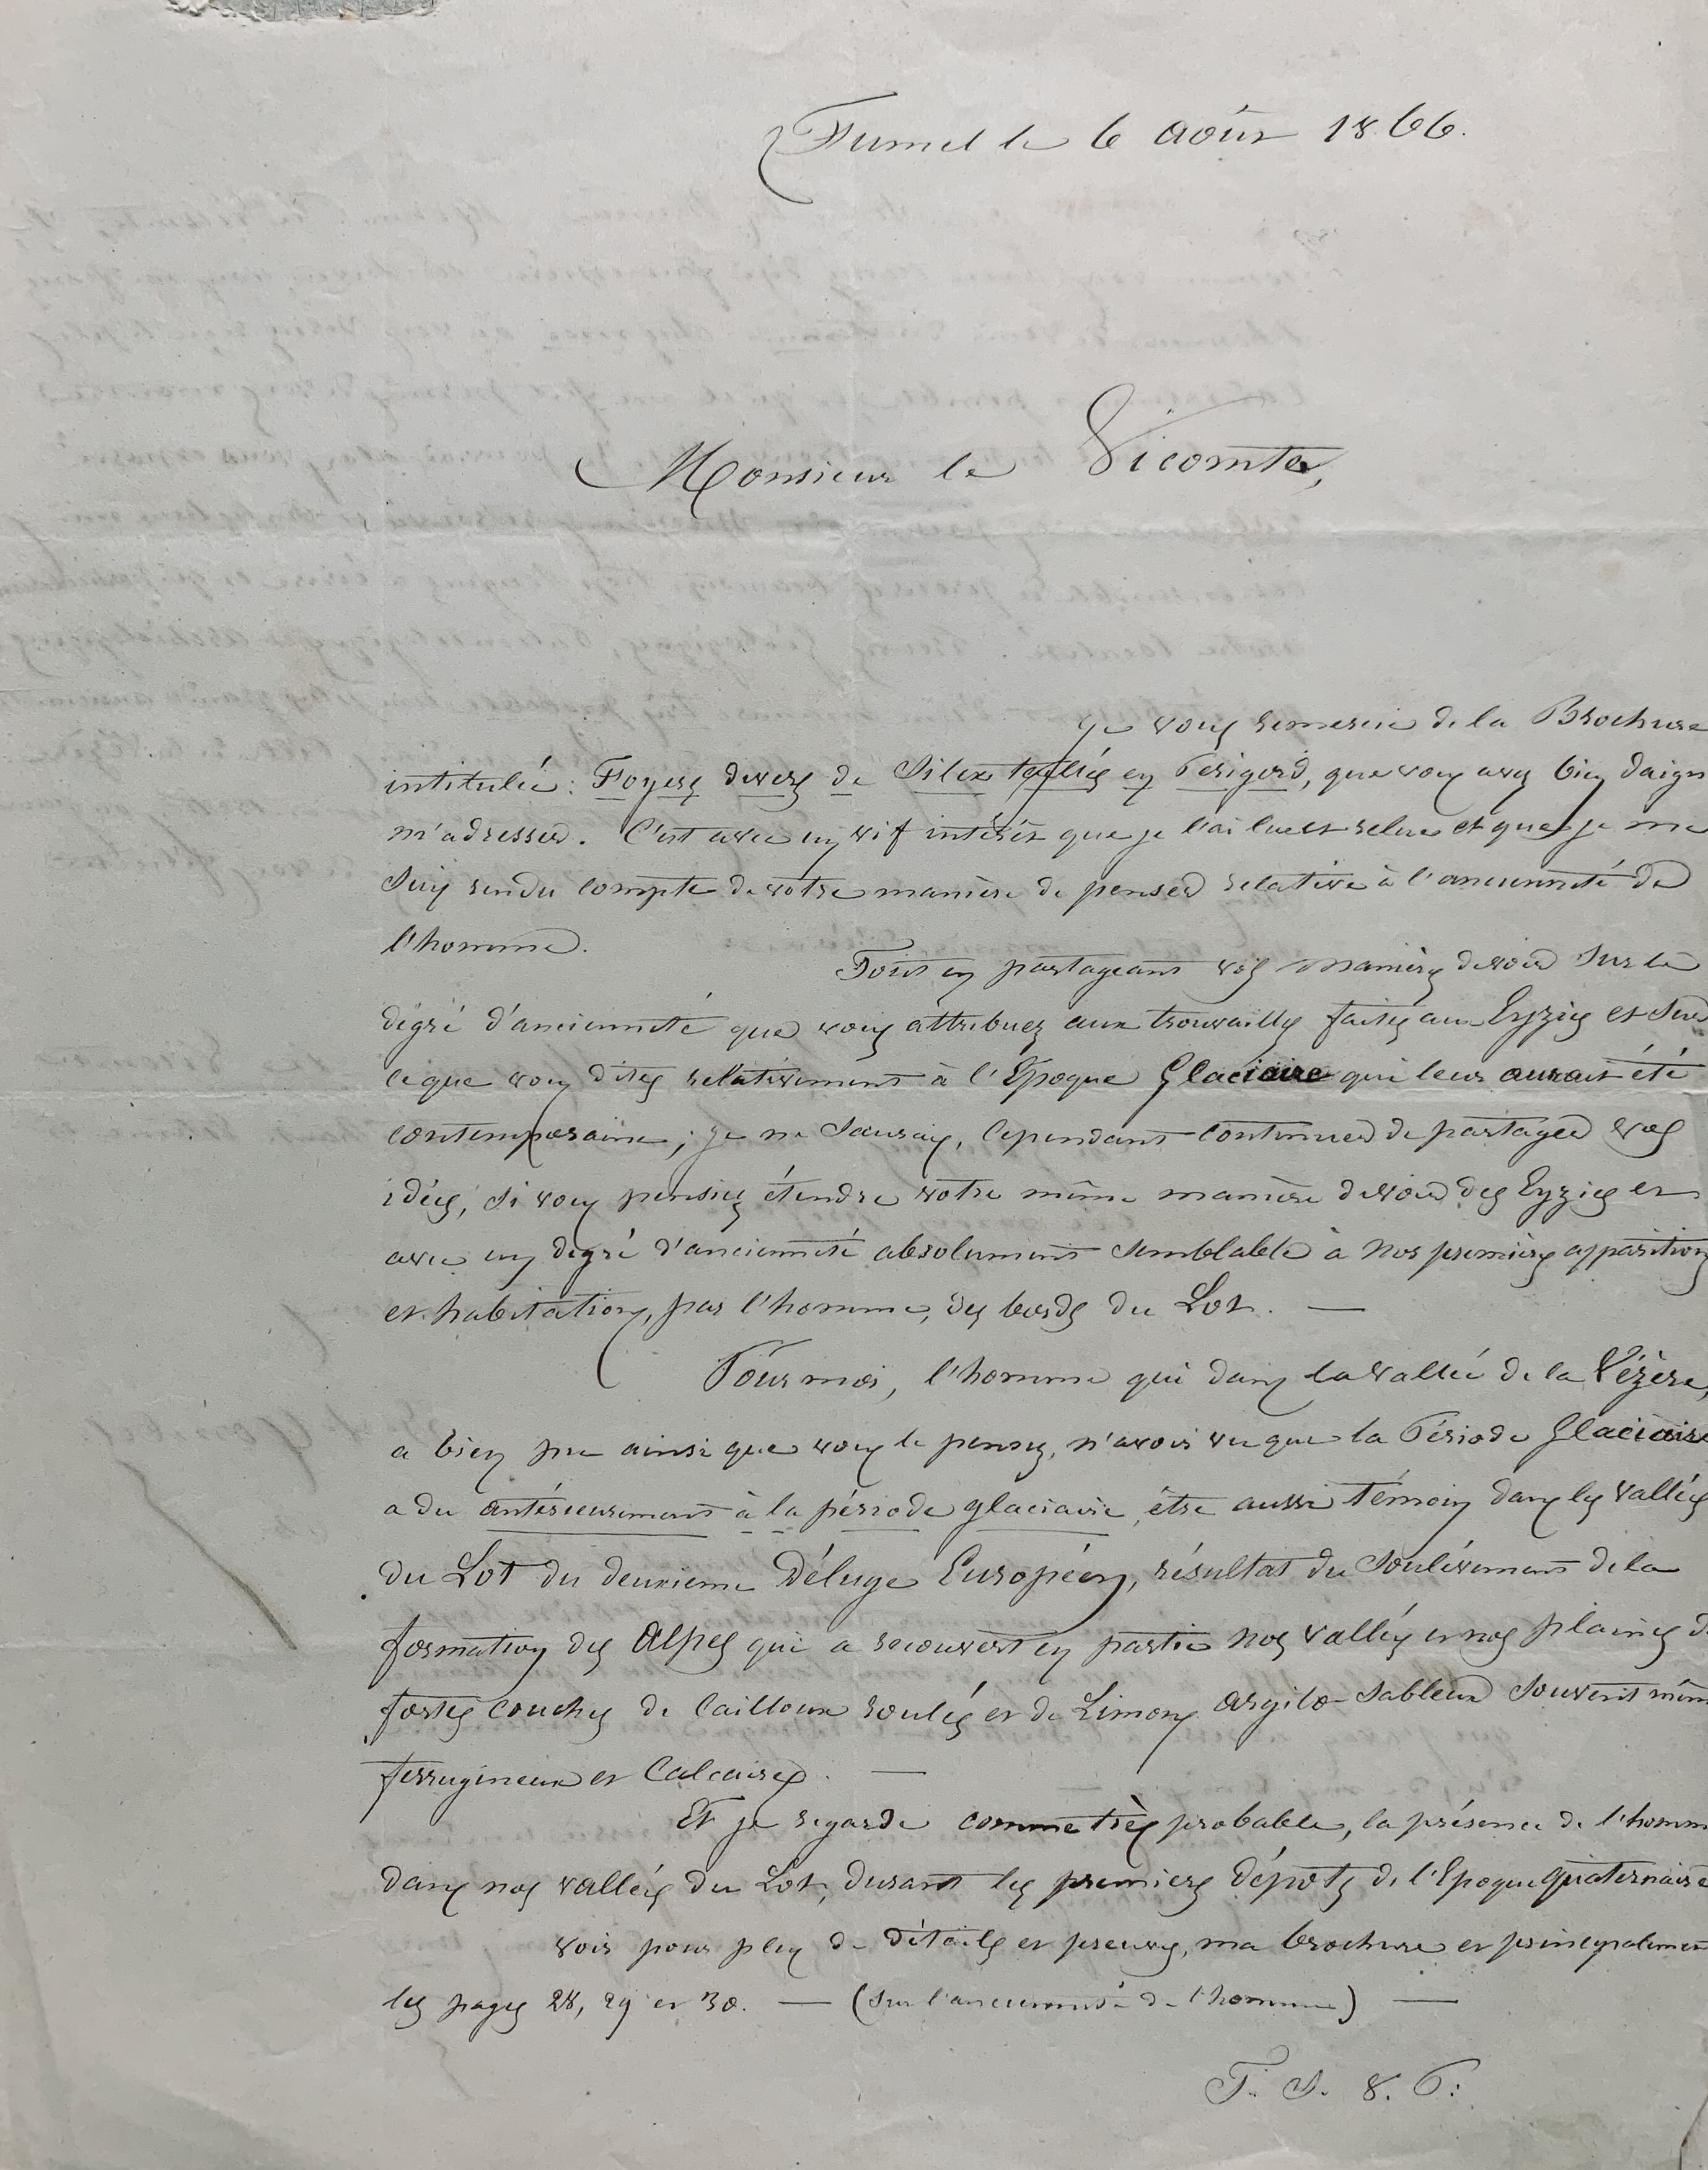 Fumel le 6 août 1866.
Monsieur le Vicomte,
Je vous remercie de la Brochure
intitulée: Foyers divers de Silex taillés en Périgord, que vous avez bien daign
m'adresser. C'est avec un vif intérêt que je l'ai lue et relue et que je me
suis rendu compte de votre manière de penser relative à l'ancienneté de
l'homme.
Tout en partageant vos manières de voir sur le
dégré d'ancienneté que vous attribuez aux trouvailles faites aux Eyzies et sur
ce que vous dites relativement à l'Epoque Glaciaire qui leur aurait été
contemporaine; je ne saurais, cependant continuer de partager vos
idées, si vous pensiez étendre votre même manière de voir des Eyzies et
avec un degré d'ancienneté absolument semblable à nos premières apparitions
et habitations, par l'homme, des bords du Lot. —
Pour moi, l'homme qui dans la vallée de la Vézère,
a bien pu ainsi que vous le pensez, n'avoir vu que la Période Glaciaire
a du antérieurement à la période glaciaire, être aussi témoin dans les vallées
du Lot du deuxieme Déluge Européen, résultat du soulèvement de la
formation des Alpes qui a recouvert en partie nos vallées et nos plaines d
fortes couches de Cailloux roulés et de Limons argilo-sableux souvent mêm
ferrugineux et Calcaires. —
Et je regarde comme très probable, la présence de l'homm
dans nos vallées du Lot, durant les premiers dépots de l'Epoque quaternaire
voir pour plus de détails et preuves, ma brochure et principalemen
les pages 28, 29 et 30. — (sur l'ancienneté de l'homme) —
T. S. V. P.